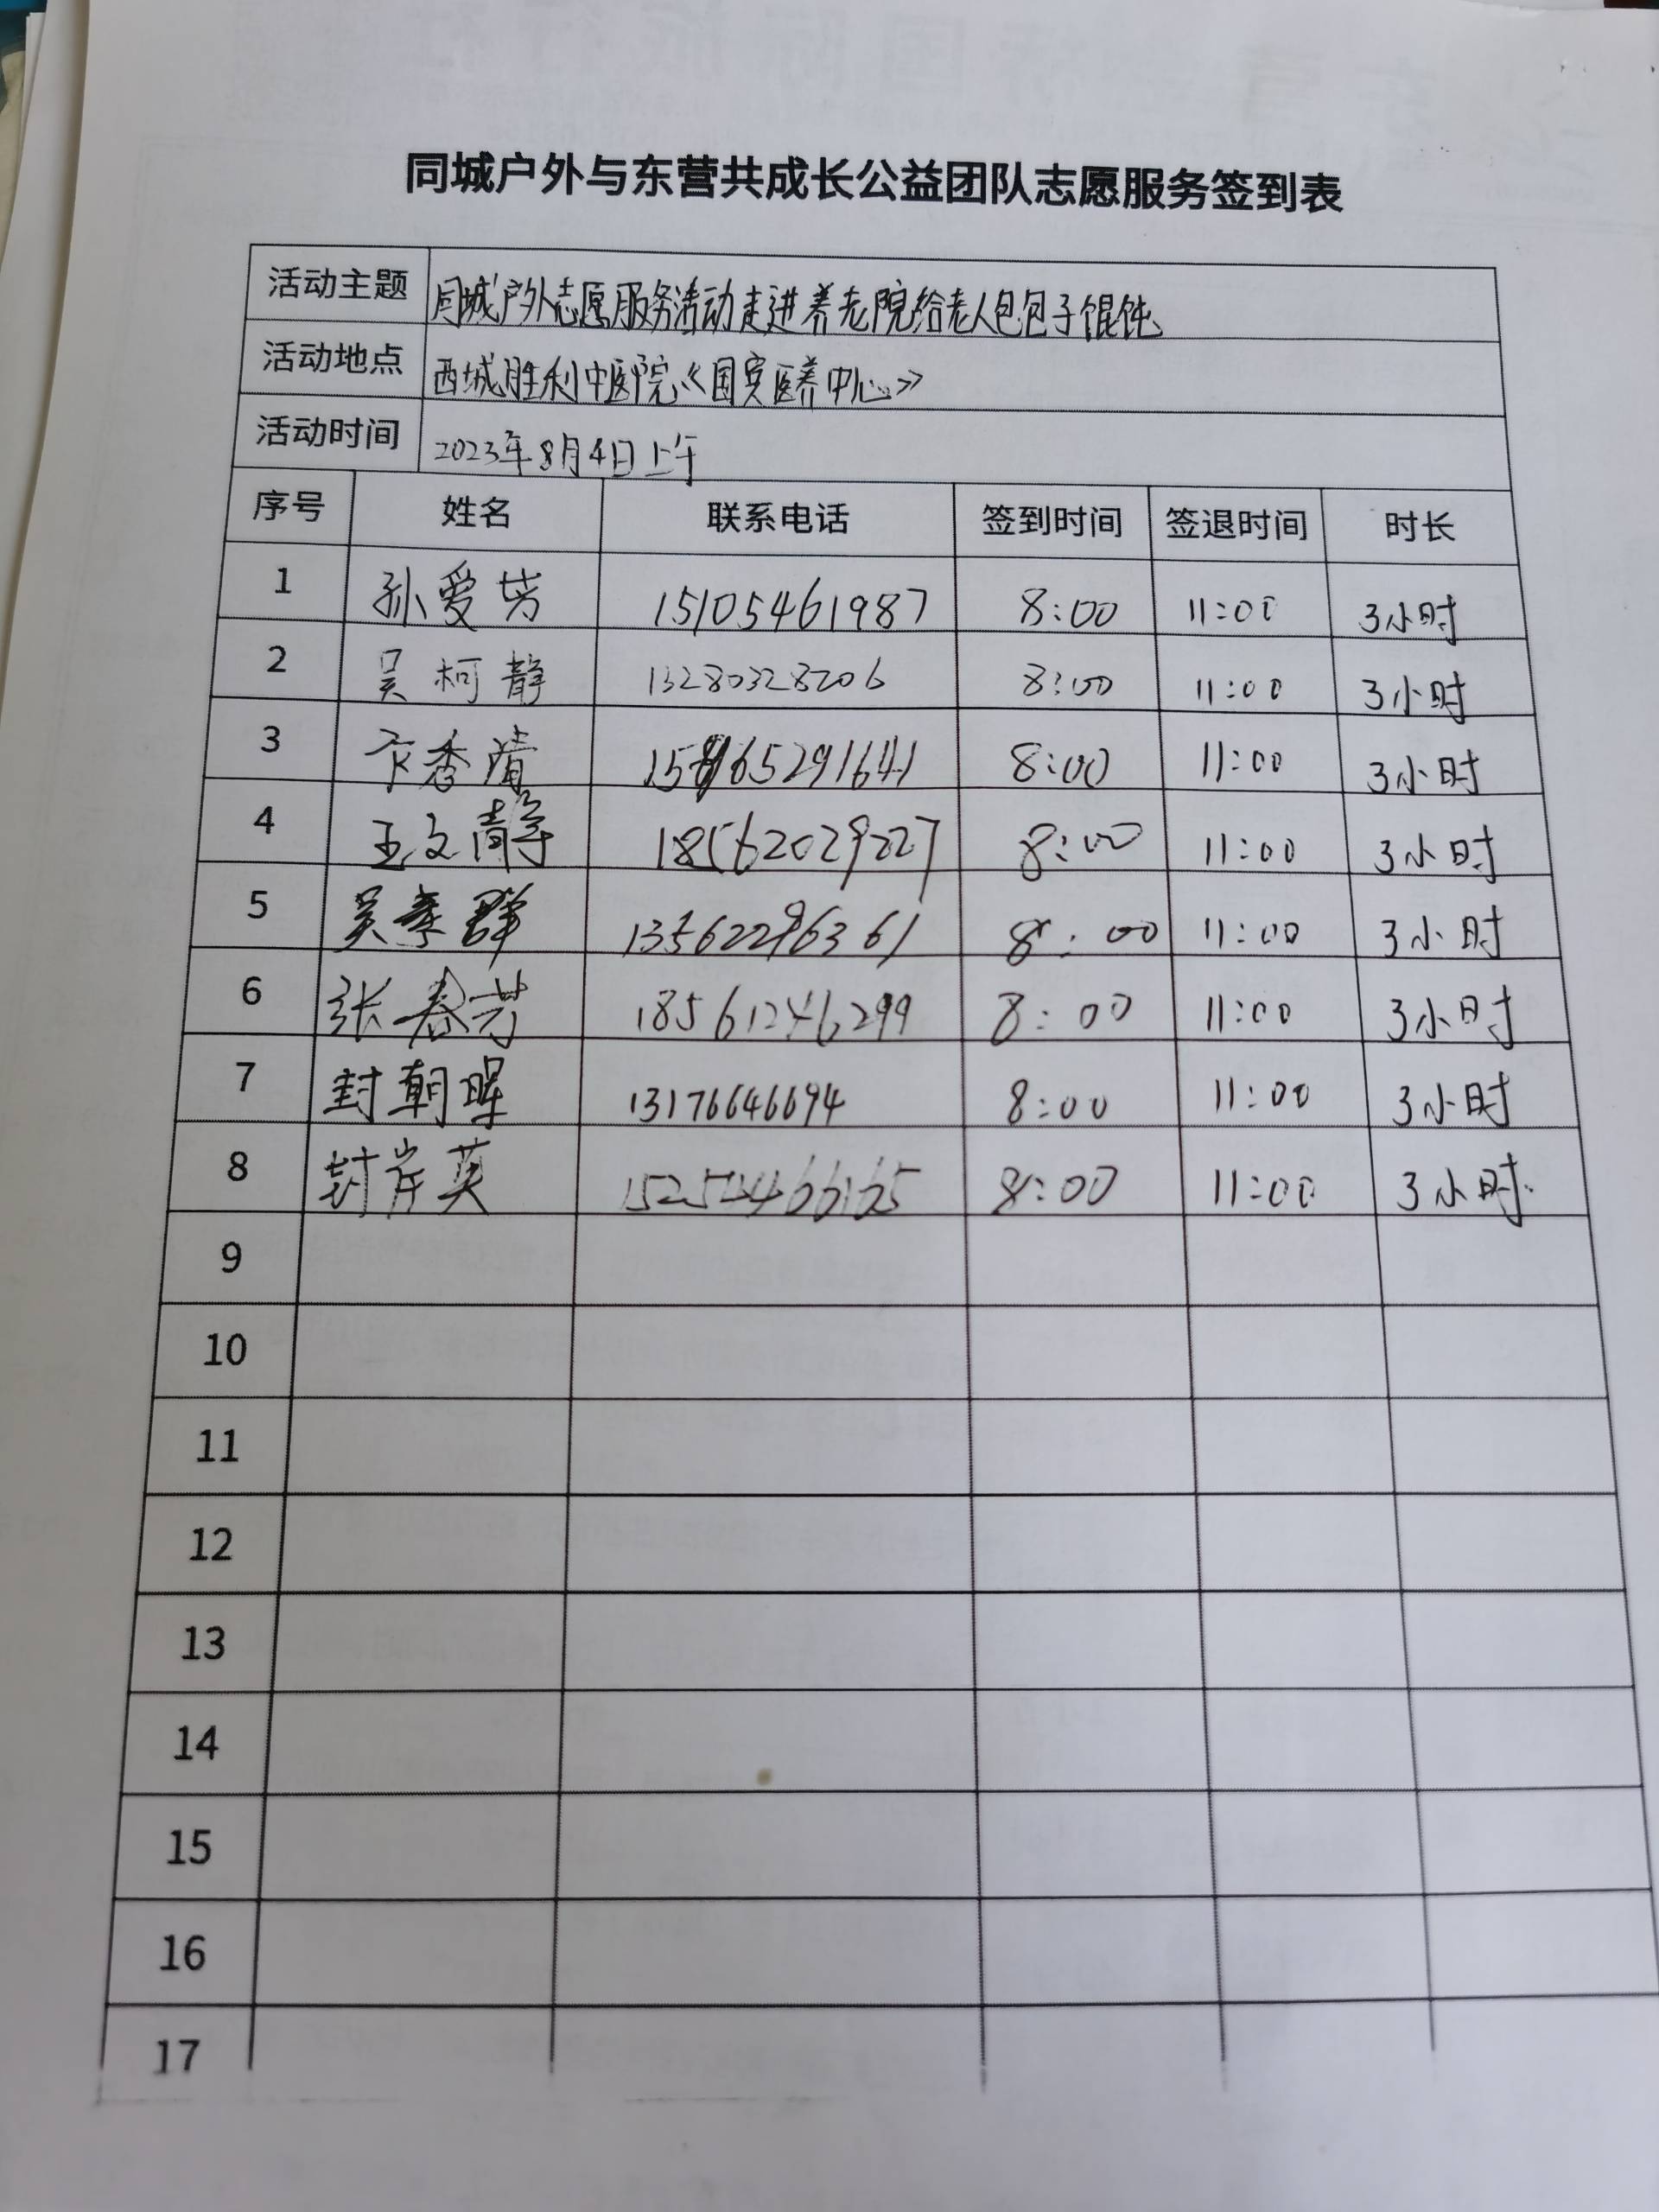 同城户外与东营共成长公益团队志愿服务签到表
活动主题 同城户外志愿服务活动走进养老院给老人包包子馄饨
活动地点 西城胜利中医院《国宾医养中心》
活动时间 2023年8月4日上午
序号 姓名 联系电话 签到时间 签退时间 时长
1 孙爱芳 15105461987 8:00 11:00 3小时
2 吴柯静 13280328206 8:00 11:00 3小时
3 卞香清 8:00 11:00 3小时
4 王文静 18562029227 8:00 11:00 3小时
5 吴孝群 13562296361 8:00 11:00 3小时
6 张春芳 18561246299 8:00 11:00 3小时
7 封朝晖 13176646694 8:00 11:00 3小时
8 封岸英 15254466165 8:00 11:00 3小时
9
10
11
12
13
14
15
16
17